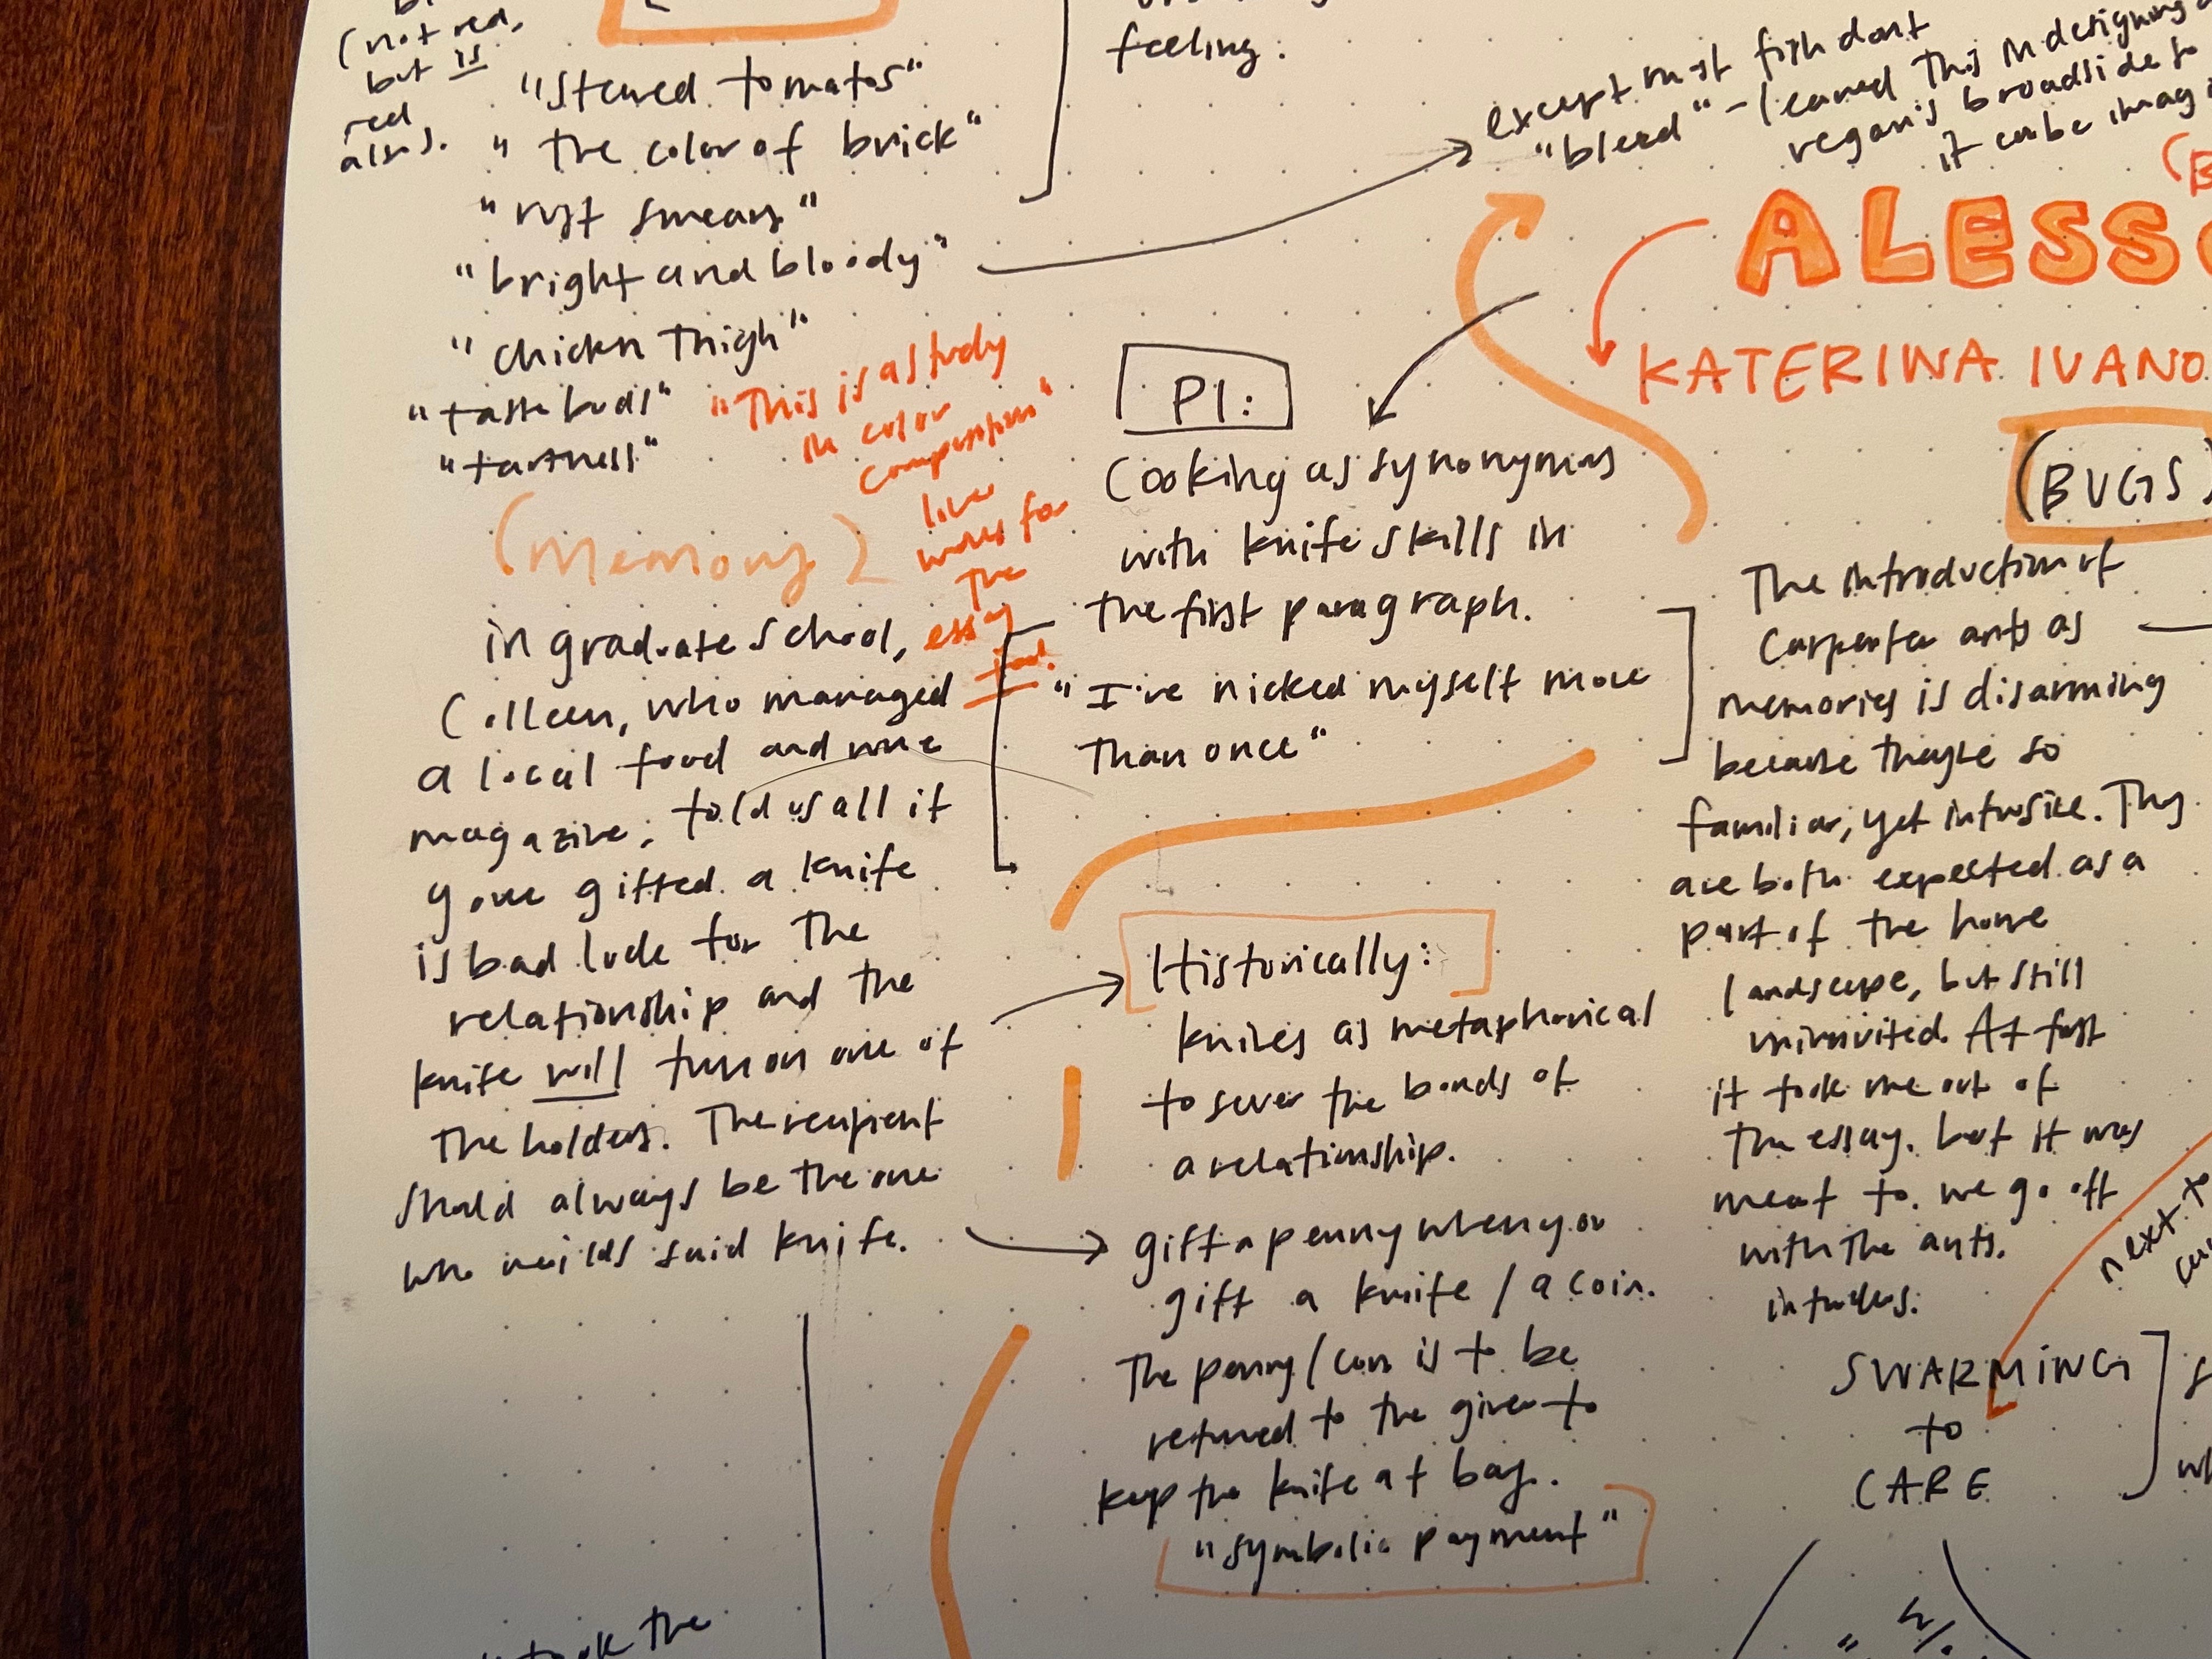 (not red,
but is
red
also).
"stewed tomatos"
"the color of brick"
"rust smears"
"bright and bloody"
"chickn thigh"
"taste buds"
"tartness"
"This is a study
in color
composition"
line
works for
the
essay
too.
(memory)
in graduate school,
Colleen, who managed
a local food and wine
magazine, told us all if
youre gifted a knife
is bad luck for the
relationship and the
knife will turn on one of
the holders. The recipient
should always be the one
who weilds said knife.
took the
feeling.
P1:
Cooking as synonymos
with knife skills in
the first paragraph.
"I've nicked myself more
than once"
Historically:
knives as metaphorical
to sever the bonds of
a relationship.
gift a penny when you
gift a knife / a coin.
The penny/coin is to be
returned to the giver to
keep the knife at bay.
"symbolic payment"
except most fish dont
"bleed" - learned this in designing
regan's broadside so
it can be
ALESS
KATERINA IVANO
(BUGS)
The introduction of
Carpenter ants as
memories is disarming
because they're so
familiar, yet intrusive. They
are both expected as a
part of the home
landscape, but still
uninvited. At first
it took me out of
the essay. but it was
meant to. we go off
with the ants.
intruders.
next to
SWARMING
to
CARE
w/